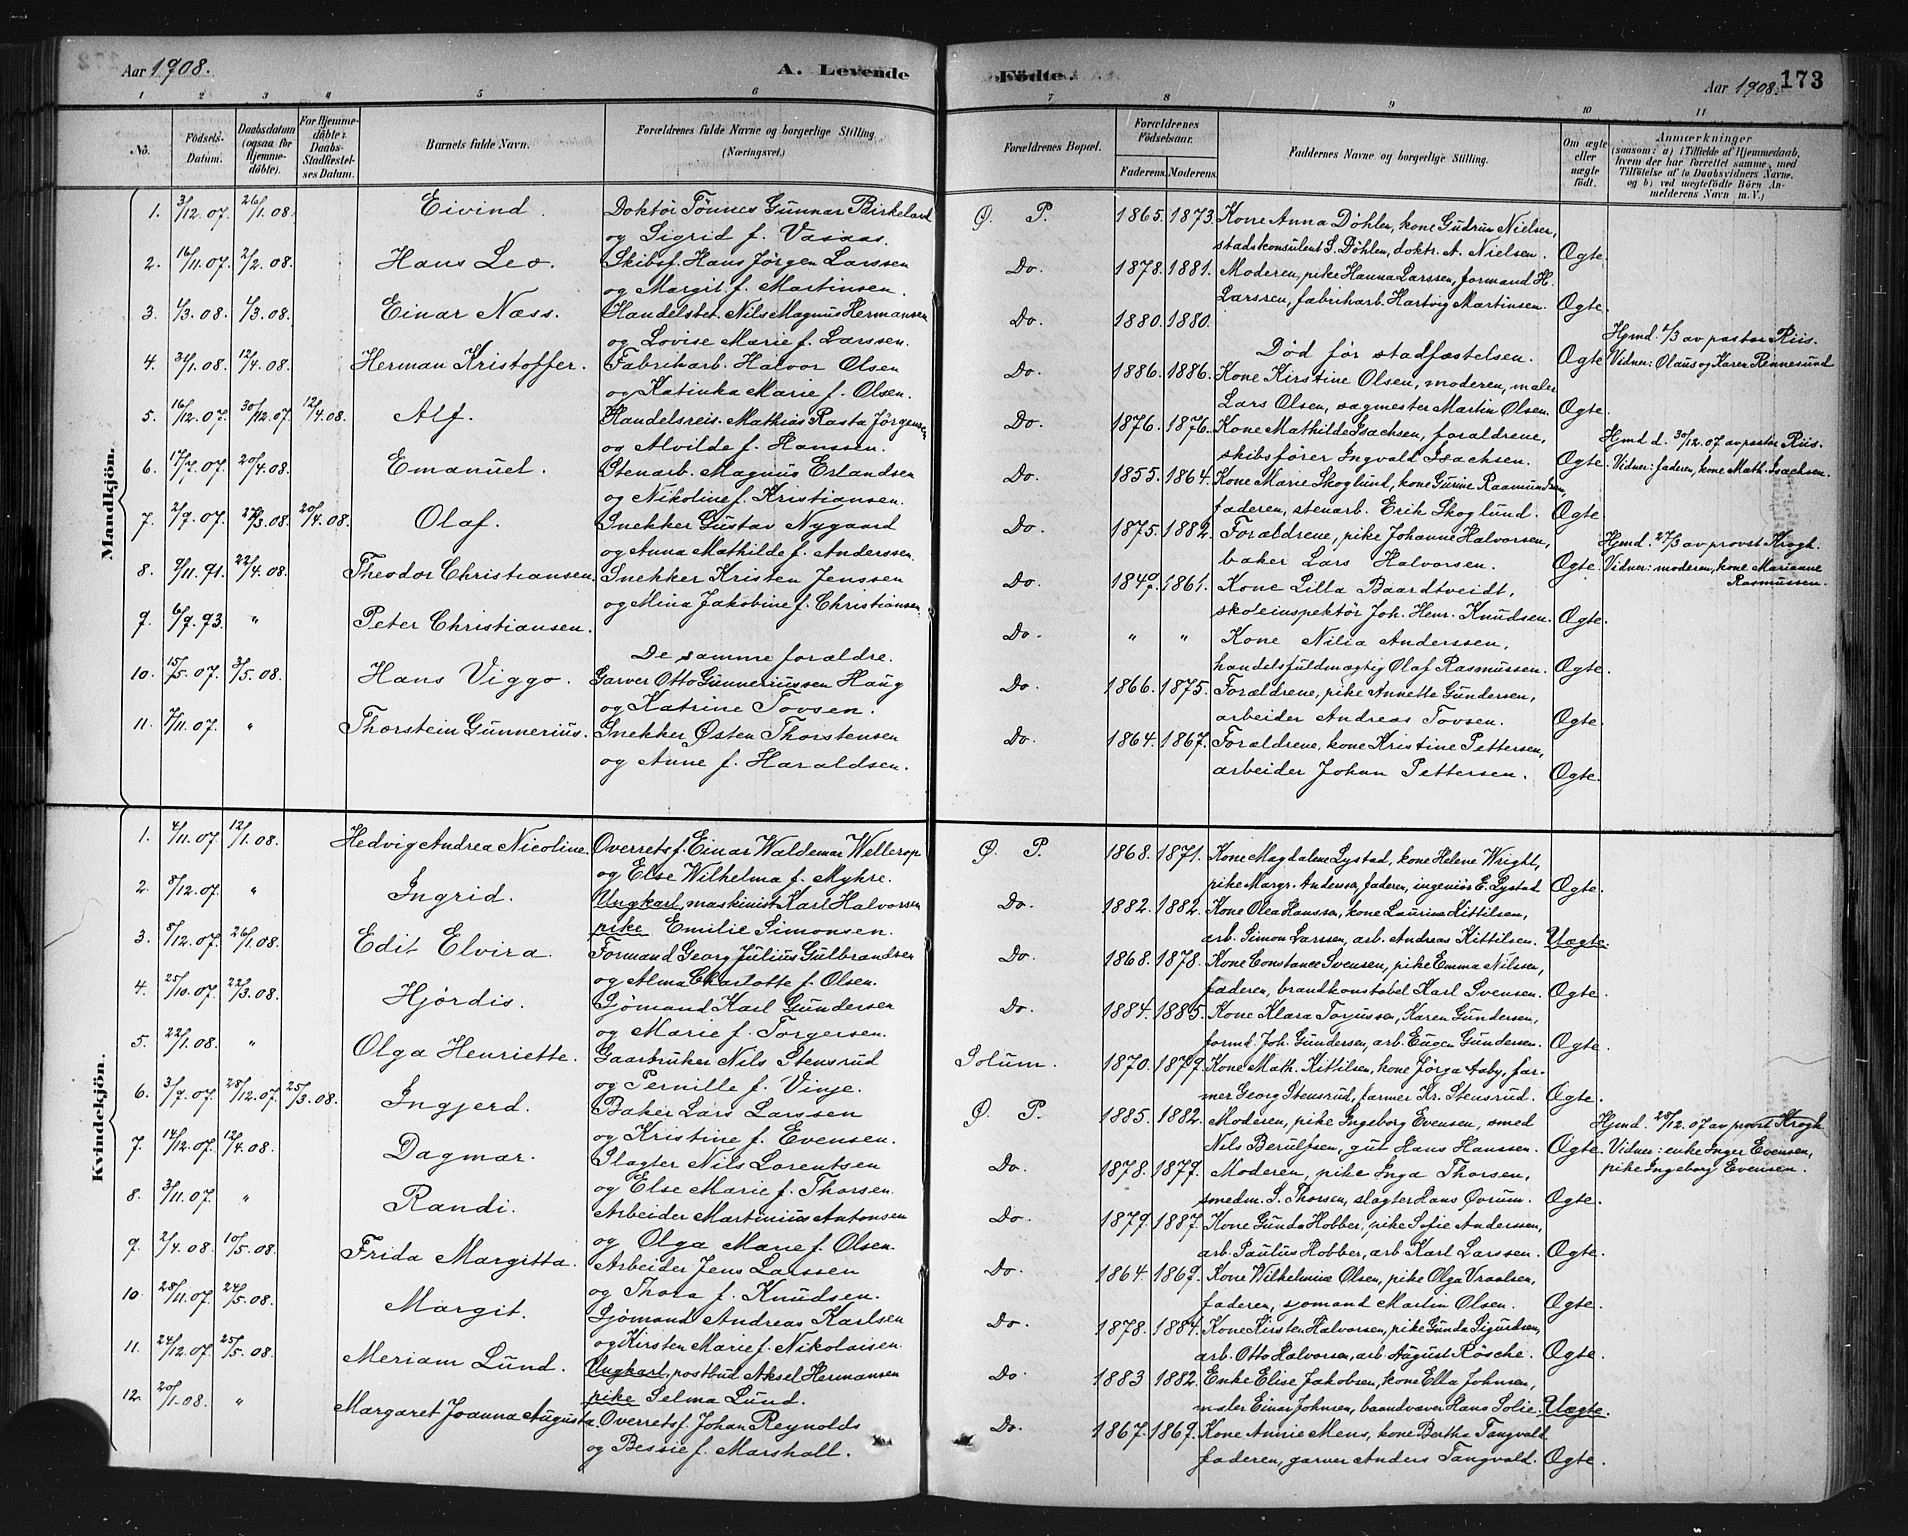 Aar 1908.
A. Levende
Födte.
Aar 1908.
173
1 2 3 4 5 6 7 8 9 10 11
No.
Födsels-Datum.
Daabsdatum (ogsaa for Hjemme-döbte).
For Hjemme-döbte: Daabs-Stadfæstel-ses Datum.
Barnets fulde Navn.
Forældrenes fulde Navne og borgerlige Stilling. (Næringsvei.)
Forældrenes Bopæl.
Forældrenes Födselsaar.
Faderens. Moderens.
Faddernes Navne og borgerlige Stilling.
Om ægte eller uægte födt.
Anmærkninger
(saasom: a) i Tilfælde af Hjemmedaab,
hvem der har forrettet samme, med
Tilföielse af to Daabsvidners Navne,
og b) ved uægtefödte Börn An-
melderens Navn (m. V.)
Mandkjön.
1. 3/12.07. 26/1.08. Eivind. Doktor Tönnes Gunnar Birkeland Ø. P. 1865. 1873. Kone Anna Döhlen, kone Gudrun Nielsen,
og Sigrid f. Vasaas. stadskonsulent S. Döhlen, doktr. A. Nielsen. Ogte.
2. 16/11.07. 2/2.08. Hans Leo. Skibsf. Hans Jørgen Larssen Do. 1878. 1881. Moderen, pike Hanna Larssen, formand H.
og Margit f. Martinsen. Larssen, fabrikarb. Hartvig Martinsen. Ogte.
3. 4/3.08. 4/3.08. Einar Næss. Handelsbet. Nils Magnus Hermansen Do. 1880. 1880. Hjmd 4/3 av pastor Riis.
og Lovise Marie f. Larssen. Død før stadfæstelsen. Ogte. Vidner: Olaus og Karen Rennesund
4. 31/1.08. 12/4.08. Herman Kristoffer. Fabrikarb. Halvor Olsen Do. 1886. 1886. Kone Kirstine Olsen, moderen, maler
og Katinka Marie f. Olsen. Lars Olsen, sagmester Martin Olsen. Ogte.
5. 16/12.07. 30/12.07. 12/4.08. Alf. Handelsreis. Mathias Rasta Jørgensen Do. 1876. 1876. Kone Mathilde Isachsen, foraldrene, Hjmd d. 30/12.07 av pastor Riis.
og Alvilde f. Hanssen. skibsfører Ingvald Isachsen. Ogte. Vidner: faderen, kone Math. Isachsen.
6. 17/7.07. 20/4.08. Emanuel. Stenarb. Magnus Erlandsen Do. 1855. 1864. Kone Marie Skoglund, kone Gurine Raamundsen,
og Nikoline f. Kristiansen. faderen, stenarb. Erik Skoglund. Ogte.
7. 2/9.07. 27/3.08. 20/4.08. Olaf. Snekker Gustav Nygaard Do. 1875. 1882. Foraldrene, pike Johanne Halvorsen, Hjmd. 27/3 av provst Krogh.
og Anna Mathilde f. Anderssen. baker Lars Halvorsen. Ogte. Vidner: moderen, kone Marianne Rasmussen.
8. 9/11.91. 22/4.08. Theodor Christiansen. Snekker Kristen Jenssen Do. 1849. 1861. Kone Lilla Baardtveidt,
og Mina Jakobine f. Christiansen skoleinspektör Joh. Henr. Knudsen. Ogte.
9. 6/9.93. " Peter Christiansen. De samme foraldre. Do. " " Kone Nilia Anderssen,
handelsfuldmægtig Olaf Rasmussen. Ogte.
10. 15/5.07. 3/5.08. Hans Viggo. Garver Otto Gunneriussen Haug Do. 1866. 1875. Foraldrene, pike Annette Gundersen,
og Katrine Tovsen. arbeider Andreas Tovsen. Ogte.
11. 7/11.07. " Thorstein Gunnerius. Snekker Østen Thorstensen Do. 1864. 1867. Foraldrene, kone Kristine Pettersen,
og Anne f. Haraldsen. arbeider Johan Pettersen. Ogte.
Kvindekjön.
1. 4/11.07. 12/1.08. Hedvig Andrea Nicoline. Overretsf. Einar Waldemar Wellerop Ø. P. 1868. 1871. Kone Magdalene Lystad, kone Helene Wright,
og Else Wilhelma f. Myhre. pike Margr. Andersen, faderen, ingeniør E. Lystad Ogte.
2. 8/12.07. " Ingrid. Ungkarl, maskinist Karl Halvorsen Do. 1882. 1882. Kone Olea Hanssen, kone Laurine Kittilsen,
pike Emilie Simonsen. arb. Simon Larssen, arb. Andreas Kittilsen. Uægte.
3. 8/12.07. 26/1.08. Edit Elvira. Formand Georg Julius Gulbrandsen Do. 1868. 1878. Kone Constance Svensen, pike Emma Nilssen,
og Alma Charlotte f. Olsen. faderen, brandkonstabel Karl Svensen. Ogte.
4. 25/10.07. 22/3.08. Hjördis. Sjömand Karl Gundersen Do. 1884. 1885. Kone Klara Torjussen, Karen Gundersen,
og Marie f. Torgersen. formd. Joh. Gundersen, arb. Eugen Gundersen. Ogte.
5. 22/1.08. " Olga Henriette. Gaarbruker Nils Stensrud Solum. 1870. 1879. Kone Math. Kittilsen, kone Jørga Aaby, far-
og Pernille f. Vinje. mer Georg Stensrud, farmer Kr. Stensrud. Ogte.
6. 3/9.07. 28/12.07. 25/3.08. Ingjerd. Baker Lars Larssen Ø. P. 1885. 1882. Moderen, pike Ingeborg Evensen, smed Hjmd. 28/12.07 av provst Krogh
og Kristine f. Evensen. Nils Berulfsen, gut Hans Hanssen. Ogte. Vidner: enke Inger Evensen,
pike Ingeborg Evensen.
7. 14/12.07. 12/4.08. Dagmar. Slagter Nils Lorentsen Do. 1878. 1879. Moderen, pike Inga Thorsen,
og Else Marie f. Thorsen. smedm. S. Thorsen, slagter Hans Øvrum. Ogte.
8. 3/11.07. " Randi. Arbeider Martinius Antonsen Do. 1879. 1887. Kone Gunda Hobber, pike Sofie Anderssen,
og Olga Marie f. Olsen. arb. Paulus Hobber, arb. Karl Larssen. Ogte.
9. 2/4.08. 10/5.08. Frida Margitta. Arbeider Jens Larssen Do. 1864. 1869. Kone Wilhelmine Olsen, pike Olga Vraalsen,
og Thora f. Knudsen. faderen, sjømand Martin Olsen. Ogte.
10. 28/11.07. 24/5.08. Margit. Sjömand Andreas Karlsen Do. 1878. 1884. Kone Kirsten Halvorsen, pike Gunda Sigurdsen,
og Kirsten Marie f. Nikolaisen. arb. Otto Halvorsen, arb. August Rösche. Ogte.
11. 24/12.07. 25/5.08. Meriam Lund. Ungkarl, postbud Aksel Hermansen Do. 1883 1882. Enke Elise Jakobsen, kone Ella Johnsen,
pike Selma Lund. maler Einar Johnsen, baandvæver Hans Solie. Uægte.
12. 20/1.08. " Margaret Joanna Augusta. Overretsf. Johan Reynolds Do. 1867. 1869. Kone Annie Mens, kone Bertha Tangvald
og Bessie f. Marshall. faderen, garver Anders Tangvald. Ogte.